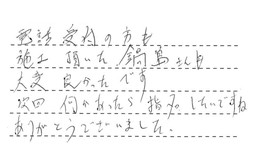 電話受付の方も
施工頂いた鍋島さんも
大変良かったです
次回何かあったら指名したいですね
ありがとうございました。